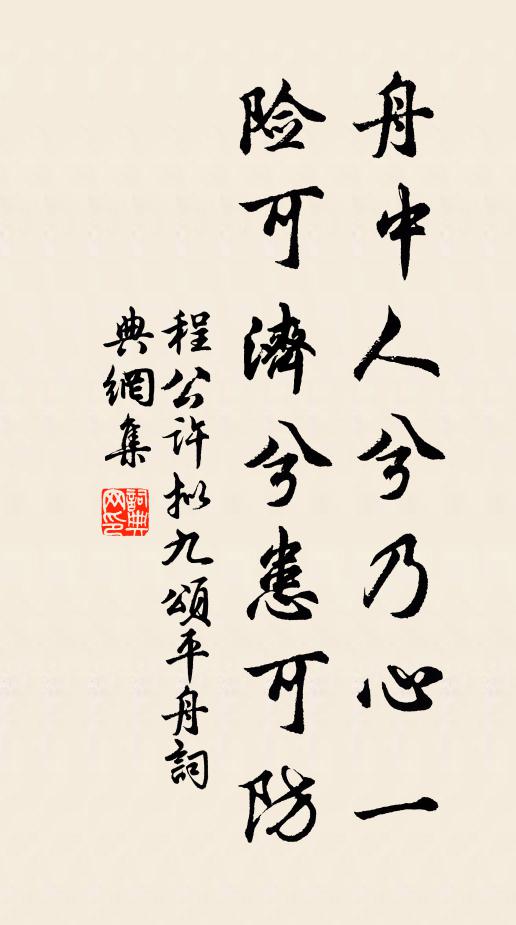 舟中人兮乃心一
险可濟兮患可防
程公许拟九頌平舟詞
典網集
詞典
网印